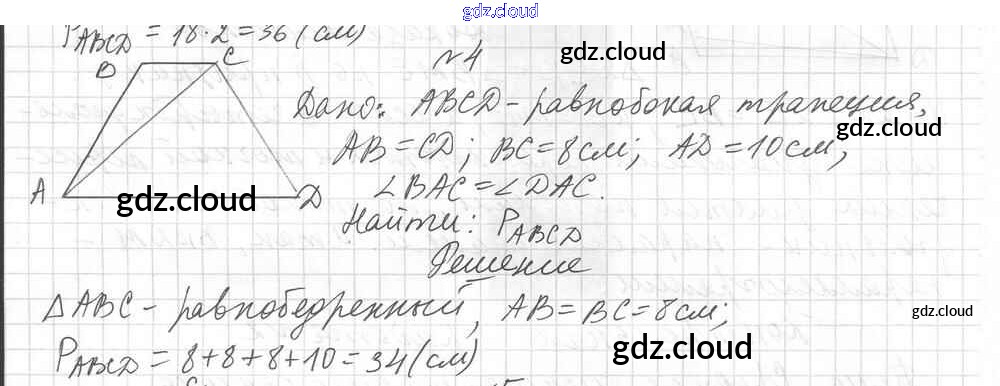 gdz.cloud
P_ABCD = 18·2=36 (см)
B C
№4
gdz.cloud
Дано: ABCD - равнобокая трапеция,
gdz.cloud
AB = CD; BC = 8см; AD = 10 см,
A D
gdz.cloud
∠BAC = ∠DAC.
Найти: P_ABCD
Решение
△ABC - равнобедренный, AB = BC = 8см;
gdz.cloud
P_ABCD = 8+8+8+10 = 34 (см)
gdz.cloud